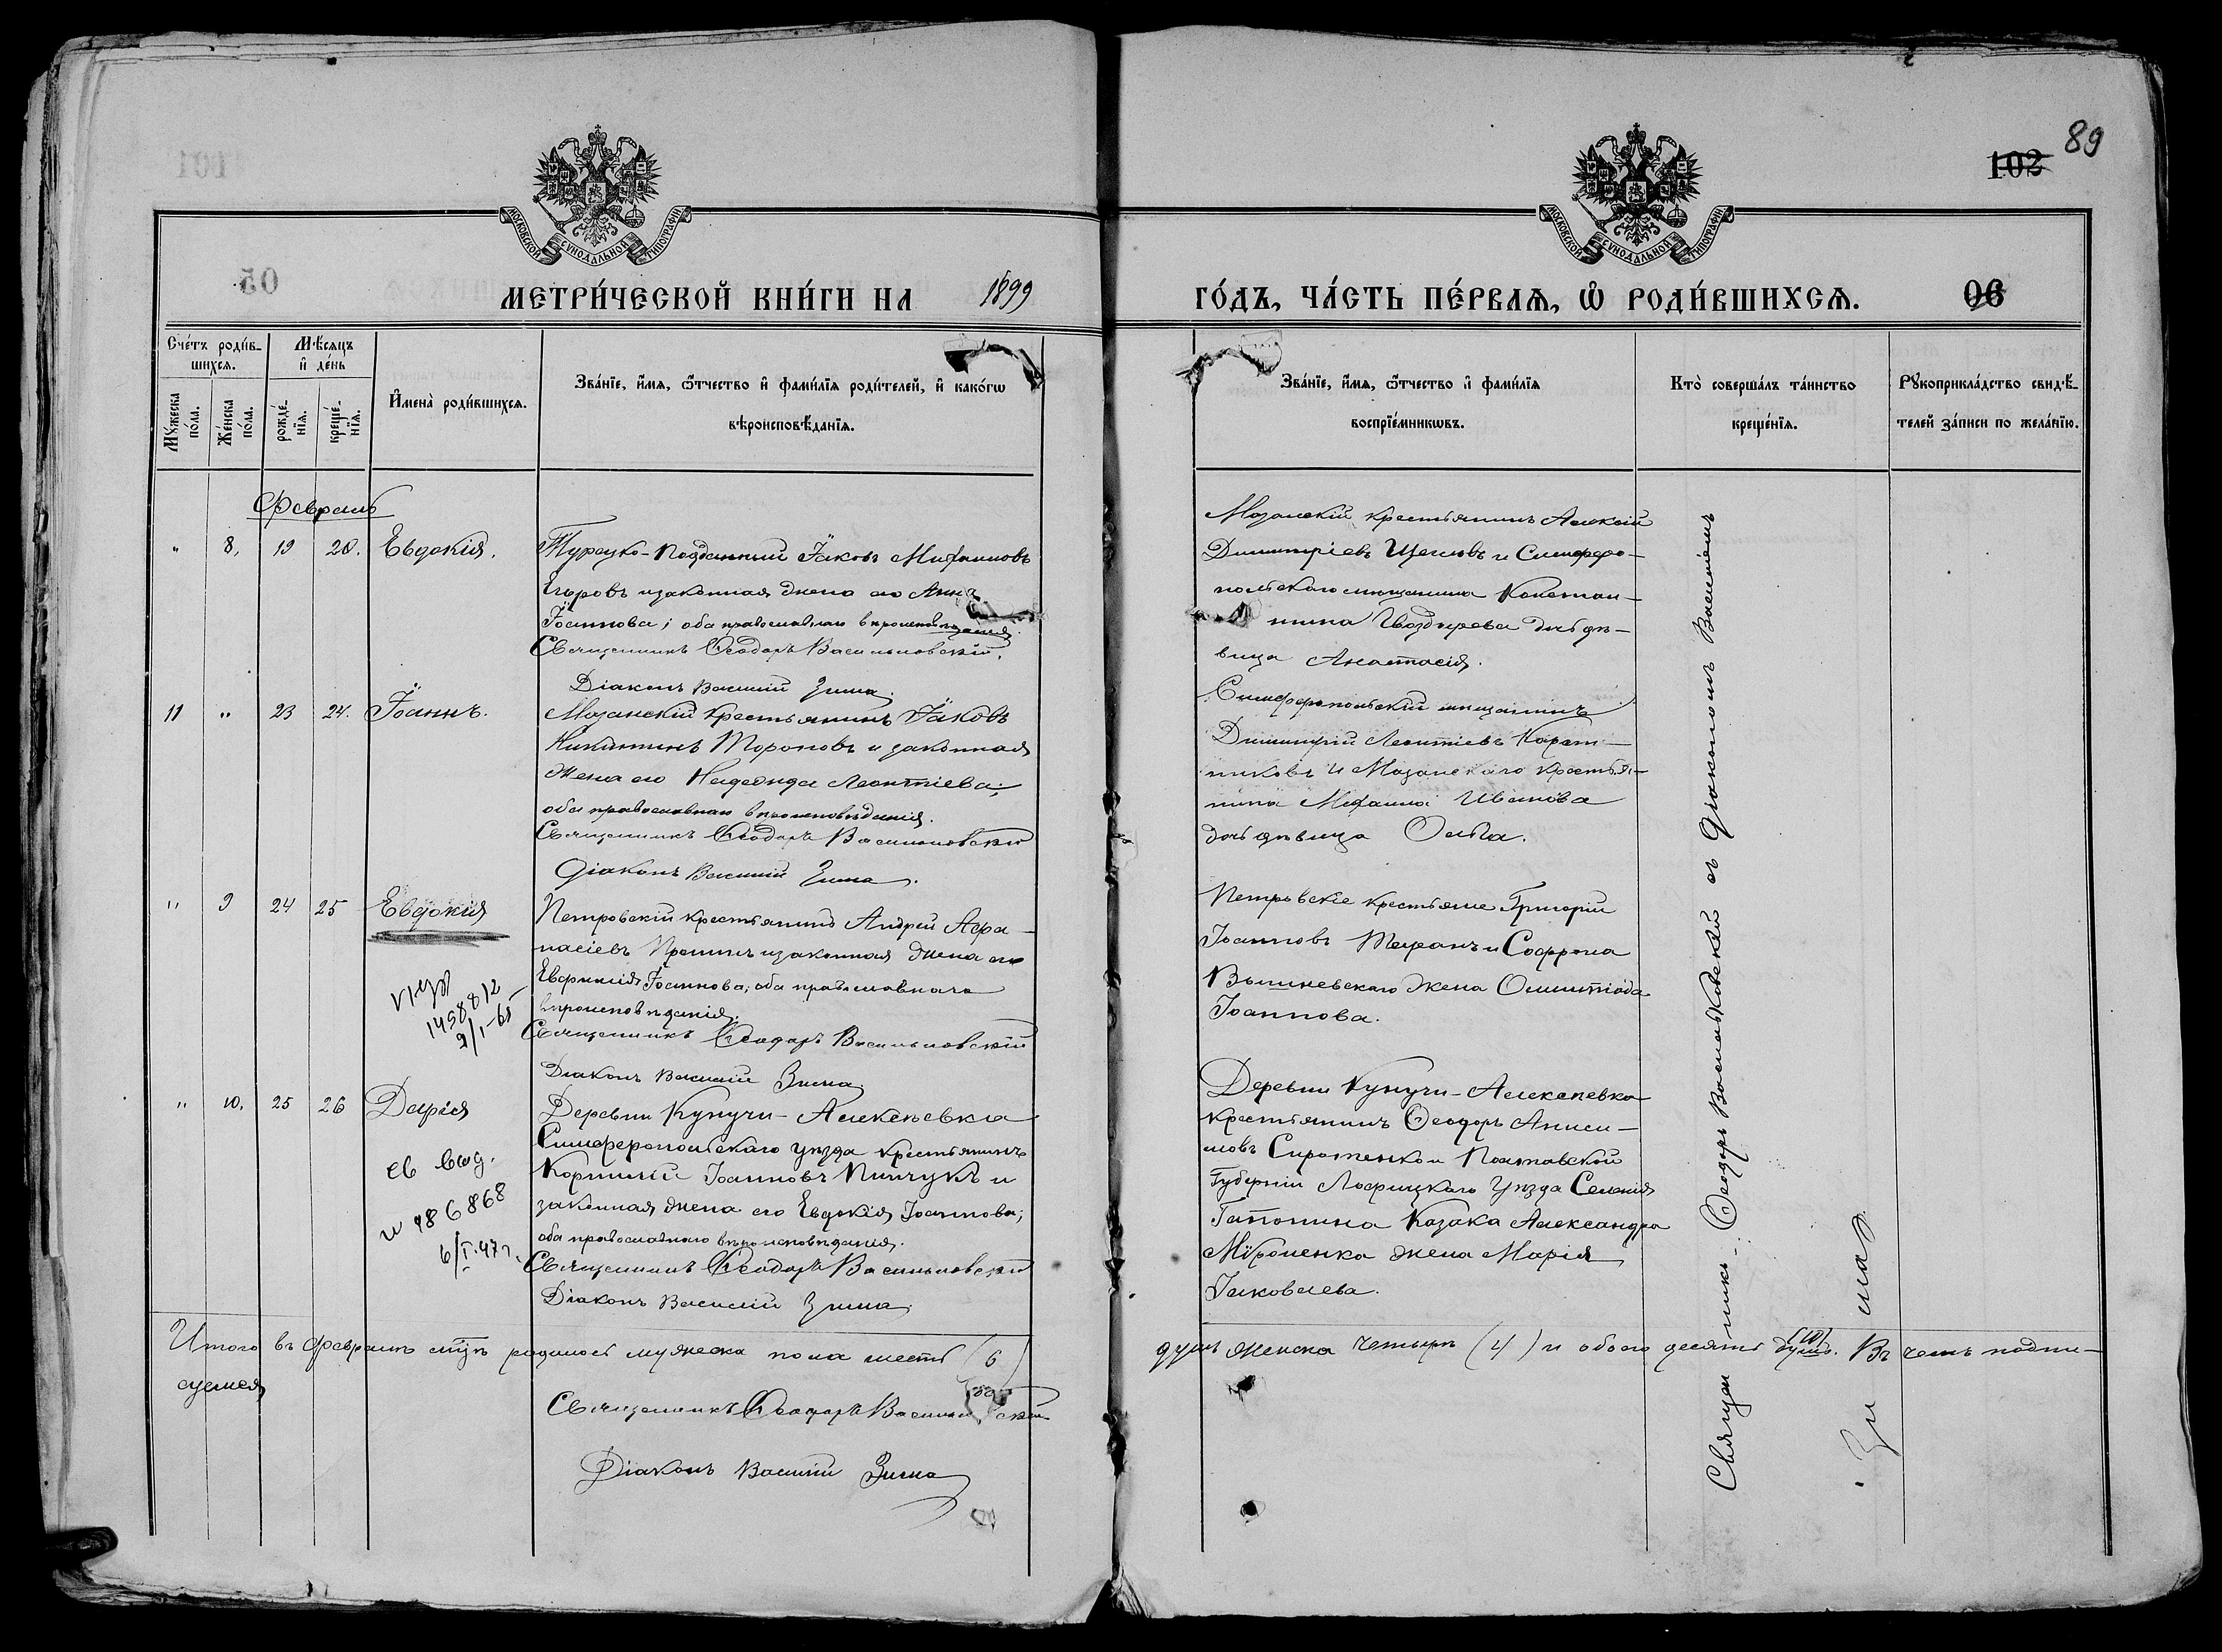 89
102
МОСКОВСКОЙ СѴНОДАЛЬНОЙ ТИПОГРАФІИ
МОСКОВСКОЙ СѴНОДАЛЬНОЙ ТИПОГРАФІИ
МЕТРИ́ЧЕСКОЙ КНИ́ГИ НА 1899
ГО́ДЪ, ЧА́СТЬ ПЕ́РВАѦ, Ѡ҆ РОДИ́ВШИХСѦ.
06
Сче́тъ роди́в-
шихсѧ.
Мꙋ́жеска по́ла.
Же́нска по́ла.
Мѣ́сѧцъ и҆ де́нь
рожде́-
нїѧ.
креще́-
нїѧ.
И҆мена̀ роди́вшихсѧ.
Зва́нїе, и҆́мѧ, ѻ҆́тчество и҆ фами́лїѧ роди́телей, и҆ како́гѡ
вѣроисповѣ́данїѧ.
Зва́нїе, и҆́мѧ, ѻ҆́тчество и҆ фами́лїѧ
воспрїе́мникѡвъ.
Кто̀ соверша́лъ та́инство
креще́нїѧ.
Рꙋкоприкла́дство свидѣ́-
телей за́писи по жела́нїю.
Февраль
" 8. 19 20. Евдокія.
Турецко-Подданный Іаковъ Михаиловъ
Егоровъ и законная жена его Анна
Іоаннова; оба православнаго вѣроисповѣданія.
Священникъ Ѳеодоръ Васильковскій.
Діаконъ Василій Зима.
Мазанскій крестьянинъ Алексій
Димитріевъ Щегловъ и Симферо-
польскаго мѣщанина Констан-
тина Гвоздырева дочь дѣ-
вица Анастасія.
11 " 23 24. Іоаннъ.
Мазанскій крестьянинъ Іаковъ
Никитинъ Тороповъ и законная
жена его Надежда Леонтіева;
оба православнаго вѣроисповѣданія.
Священникъ Ѳеодоръ Васильковскій
Діаконъ Василій Зима.
Симферопольскій мѣщанинъ
Димитрій Леонтіевъ Карат-
никовъ и Мазанскаго крестья-
нина Михаила Иванова
дочь дѣвица Ольга.
" 9 24 25 Евдокія
1458812
9/I-65
Петровскій крестьянинъ Андрей Афа-
насіевъ Пронинъ и законная жена его
Евфимія Іоаннова; оба православнаго
вѣроисповѣданія.
Священникъ Ѳеодоръ Васильковскій
Діаконъ Василій Зима.
Петровскіе крестьяне Григорій
Іоанновъ Таранъ и Софрона
Вышневскаго жена Олимпіада
Іоаннова.
" 10. 25 26 Дарія
св выд.
486868
6/I.47г.
Деревни Кунучи-Алексѣевка
Симферопольскаго уѣзда крестьянинъ
Корнилій Іоанновъ Пинчукъ и
законная жена его Евдокія Іоаннова;
оба православнаго вѣроисповѣданія.
Священникъ Ѳеодоръ Васильковскій
Діаконъ Василій Зима.
Деревни Кунучи-Алексѣевка
крестьянинъ Ѳеодоръ Аниси-
мовъ Сиротенко и Полтавской
Губерніи Лохвицкаго Уѣзда Селенія
Казака Александра
Мироненка жена Марія
Іаковлева.
Священникъ Ѳеодоръ Васильковскій съ Діакономъ Василіемъ
Зимою
Итого въ Февралѣ мцѣ родилось мужеска пола шесть (6)
душъ женска четыре (4) и обоего десять (10) душъ. Въ чемъ подпи-
суемся
Священникъ Ѳеодоръ Васильковскій
Діаконъ Василій Зима